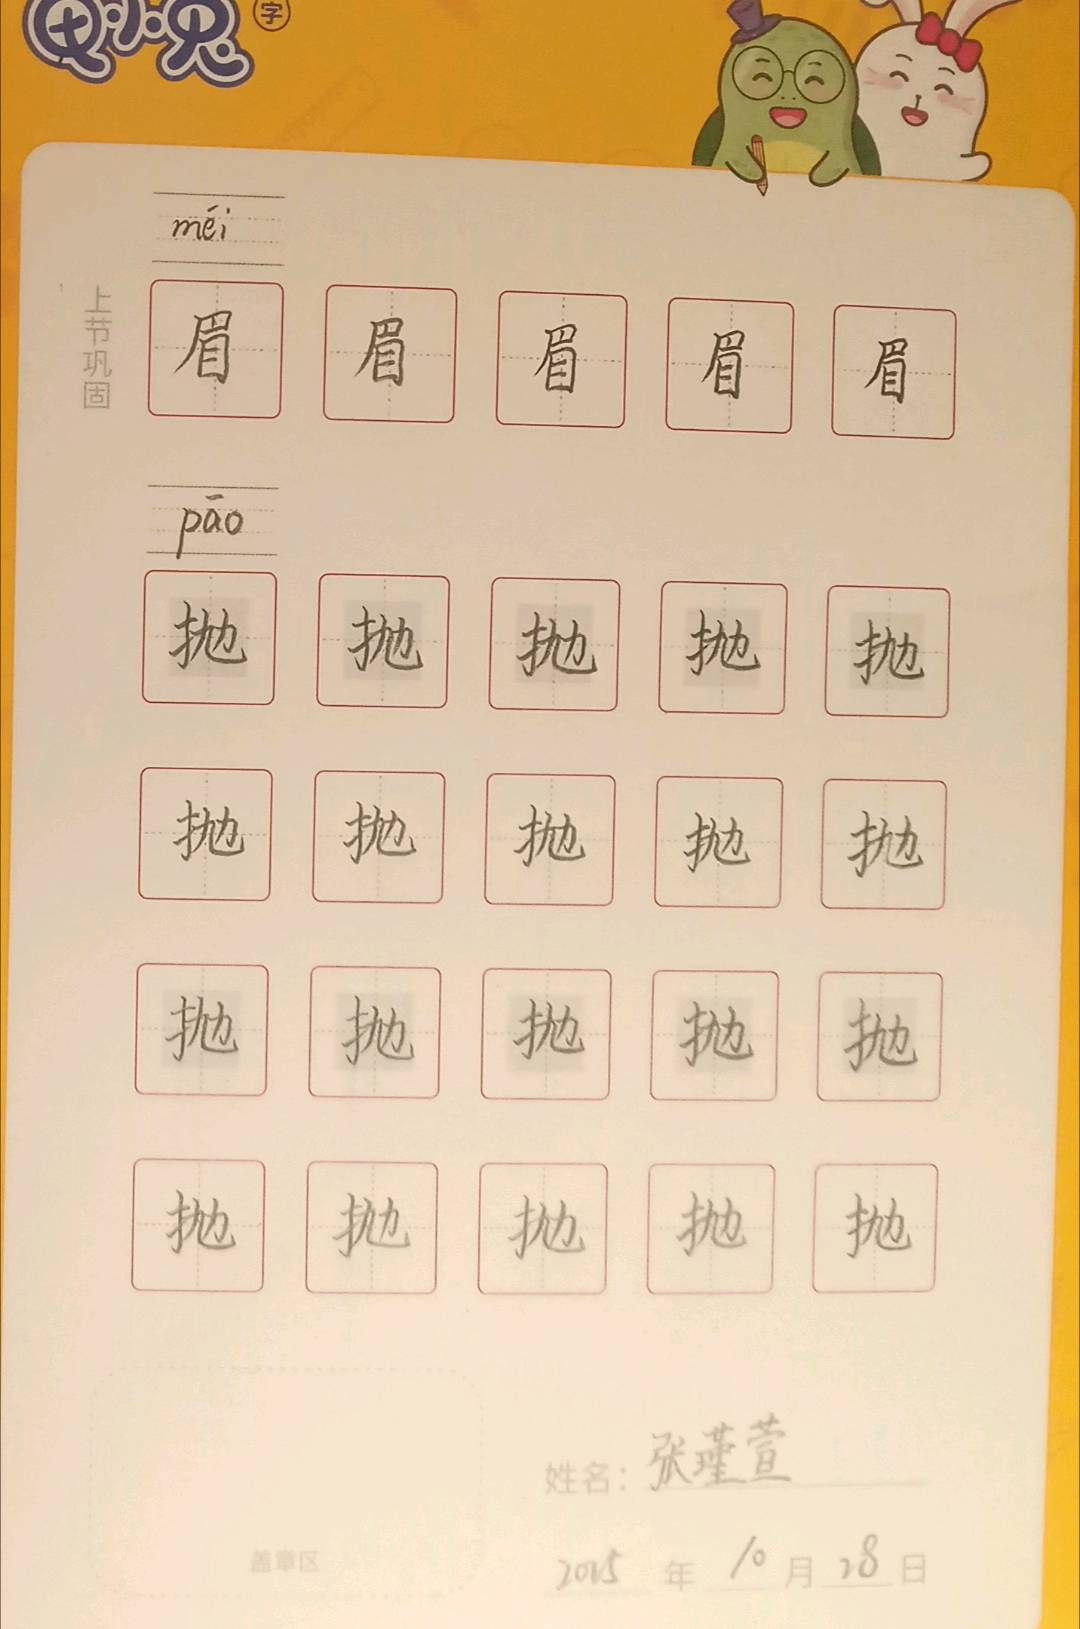 字
méi
上节巩固
眉 眉 眉 眉 眉
pāo
抛 抛 抛 抛 抛
抛 抛 抛 抛 抛
抛 抛 抛 抛 抛
抛 抛 抛 抛 抛
姓名：张瑾萱
盖章区
2025 年 10 月 28 日